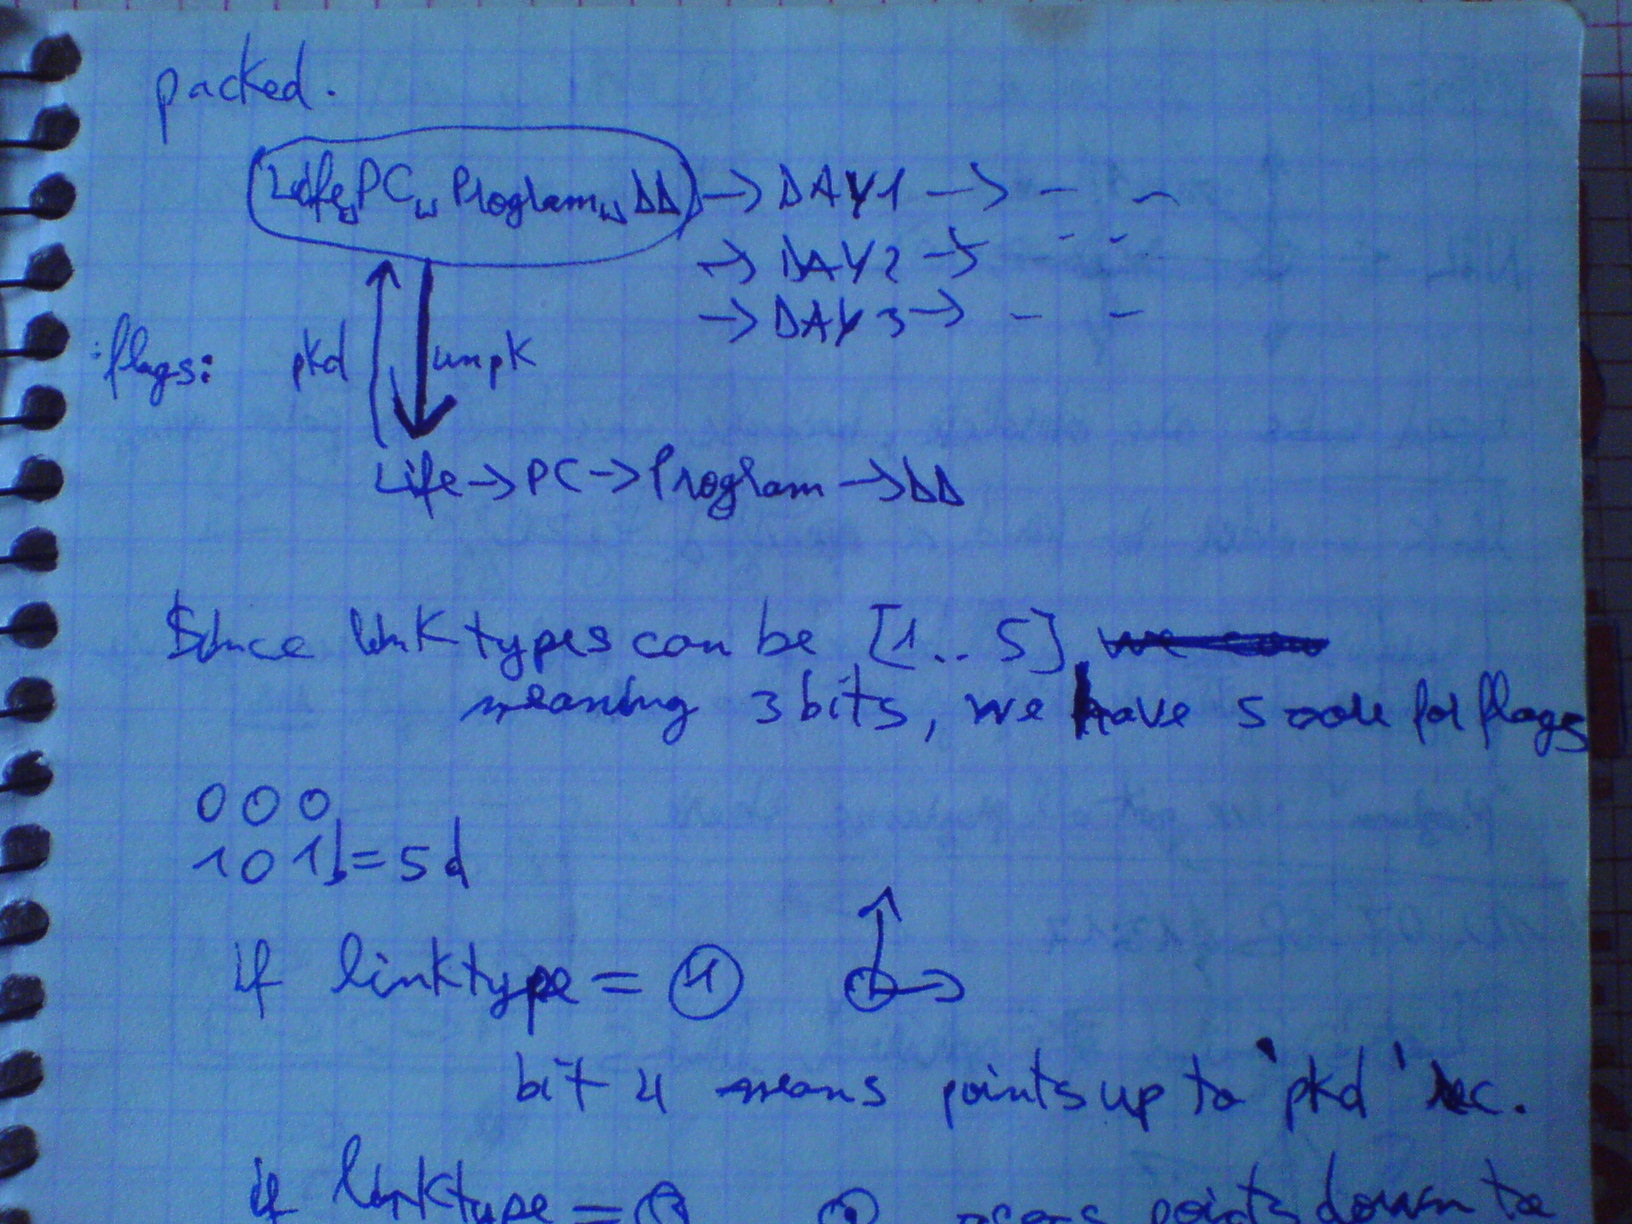 packed.
Life␣PC␣Program␣ΔΔ → DAY1 → - -
→ DAY2 → - -
→ DAY3 → - -
flags: pkd unpk
Life → PC → Program → ΔΔ
Since link types can be [1.. 5] we can
meaning 3 bits, we have 5 more for flags
000
101b=5d
if linktype = 1
bit 4 means points up to 'pkd' rec.
if linktype = points down to